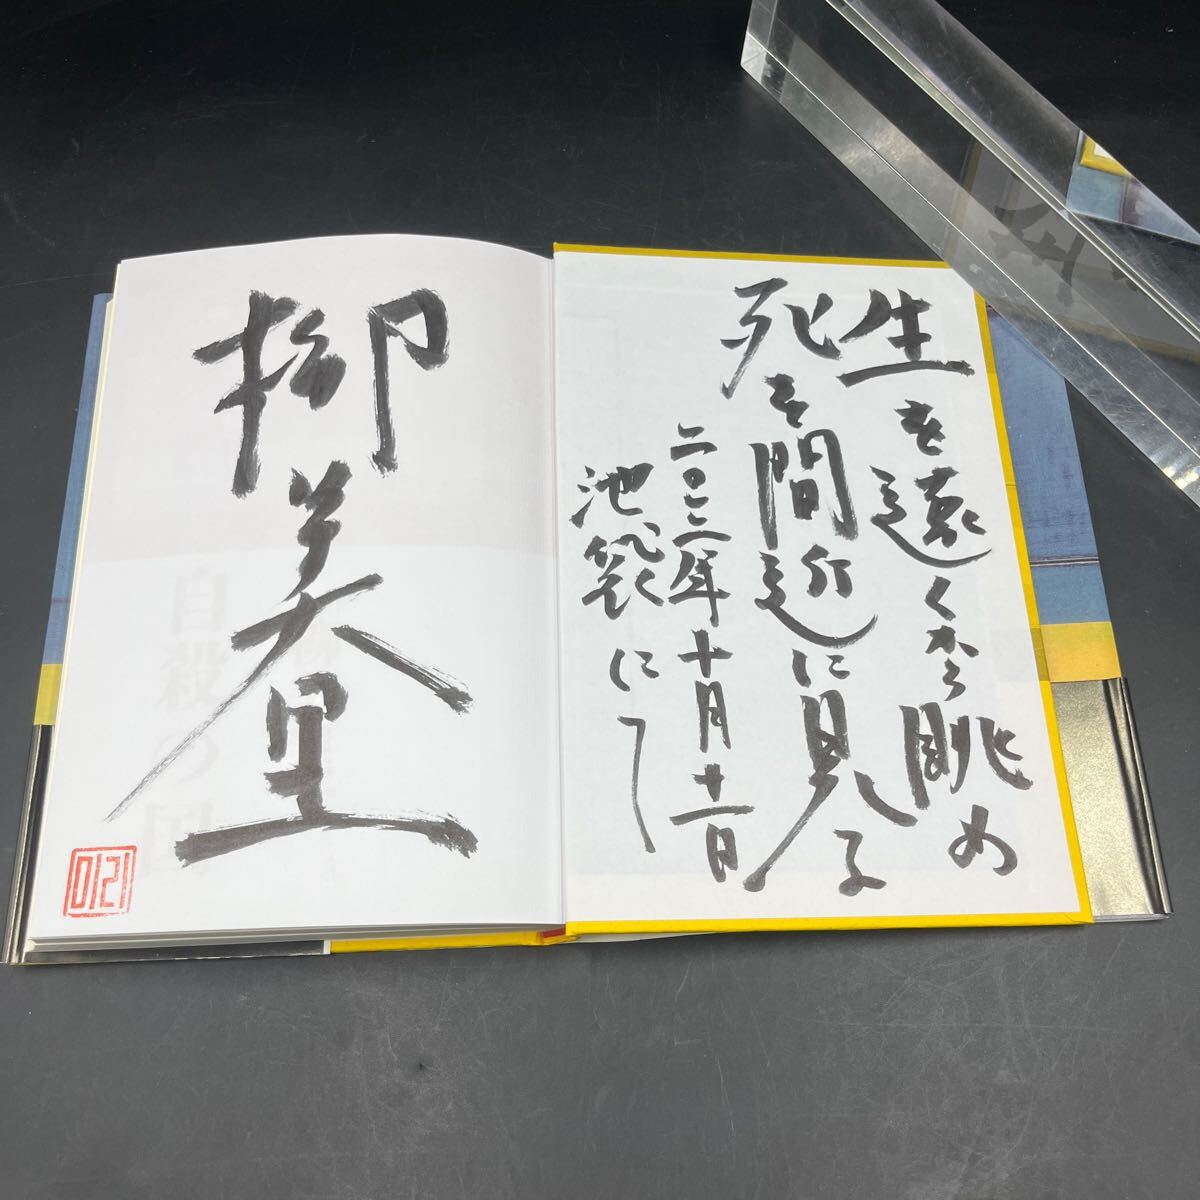 生を遠くから眺め
死を間近に見る
二〇一二年十月十一日
池袋にて
柳美里
미리
自殺の国